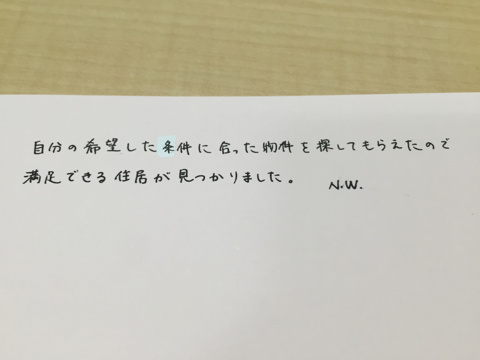 自分の希望した条件に合った物件を探してもらえたので
満足できる住居が見つかりました。
N.W.